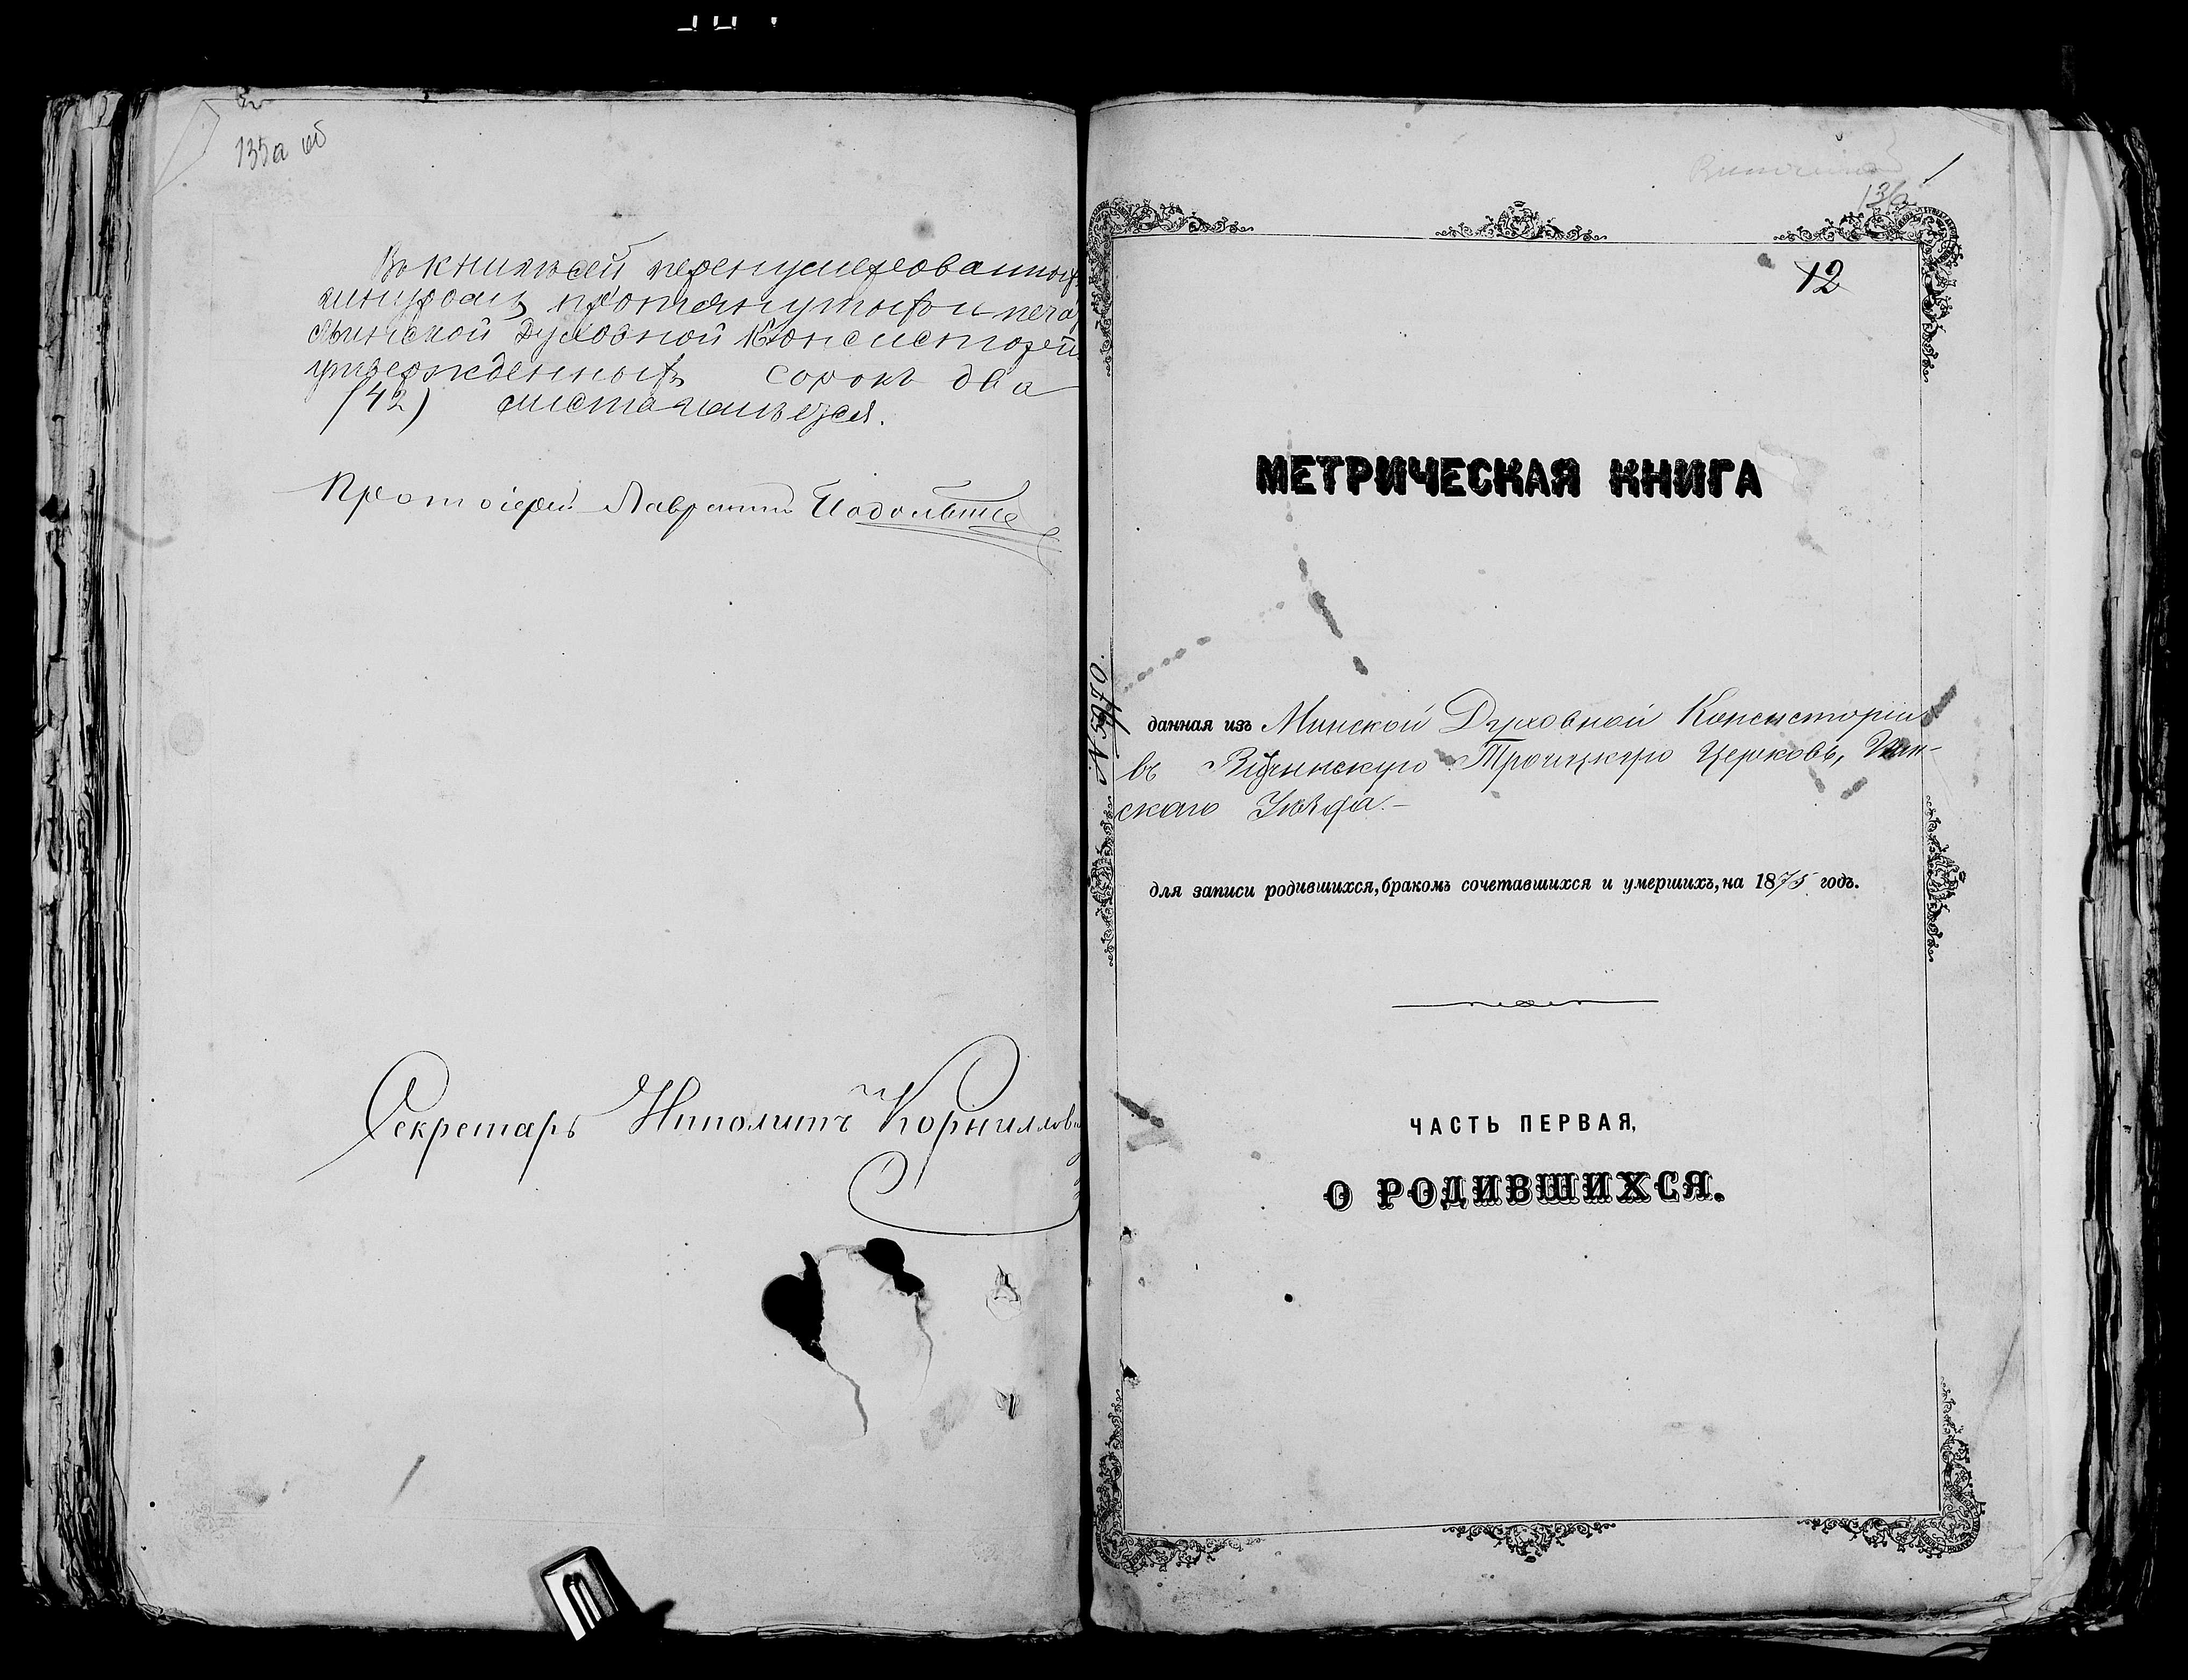 135а об
Въ книгѣ сей перенумерованныхъ
шнуромъ протянутыхъ и печа
Минской Духовной Консисторіи
утвержденныхъ сорокъ два
(42) листа имѣется.
Протоіерей Лаврентій
Секретарь Ипполитъ Корнилов
1
136
12
МЕТРИЧЕСКАЯ КНИГА
№ 5970.
данная изъ Минской Духовной Консисторіи
въ Троицкую Церковь, Пин-
скаго Уѣзда.–
для записи родившихся, бракомъ сочетавшихся и умершихъ, на 1875 годъ.
ЧАСТЬ ПЕРВАЯ,
О РОДИВШИХСЯ.